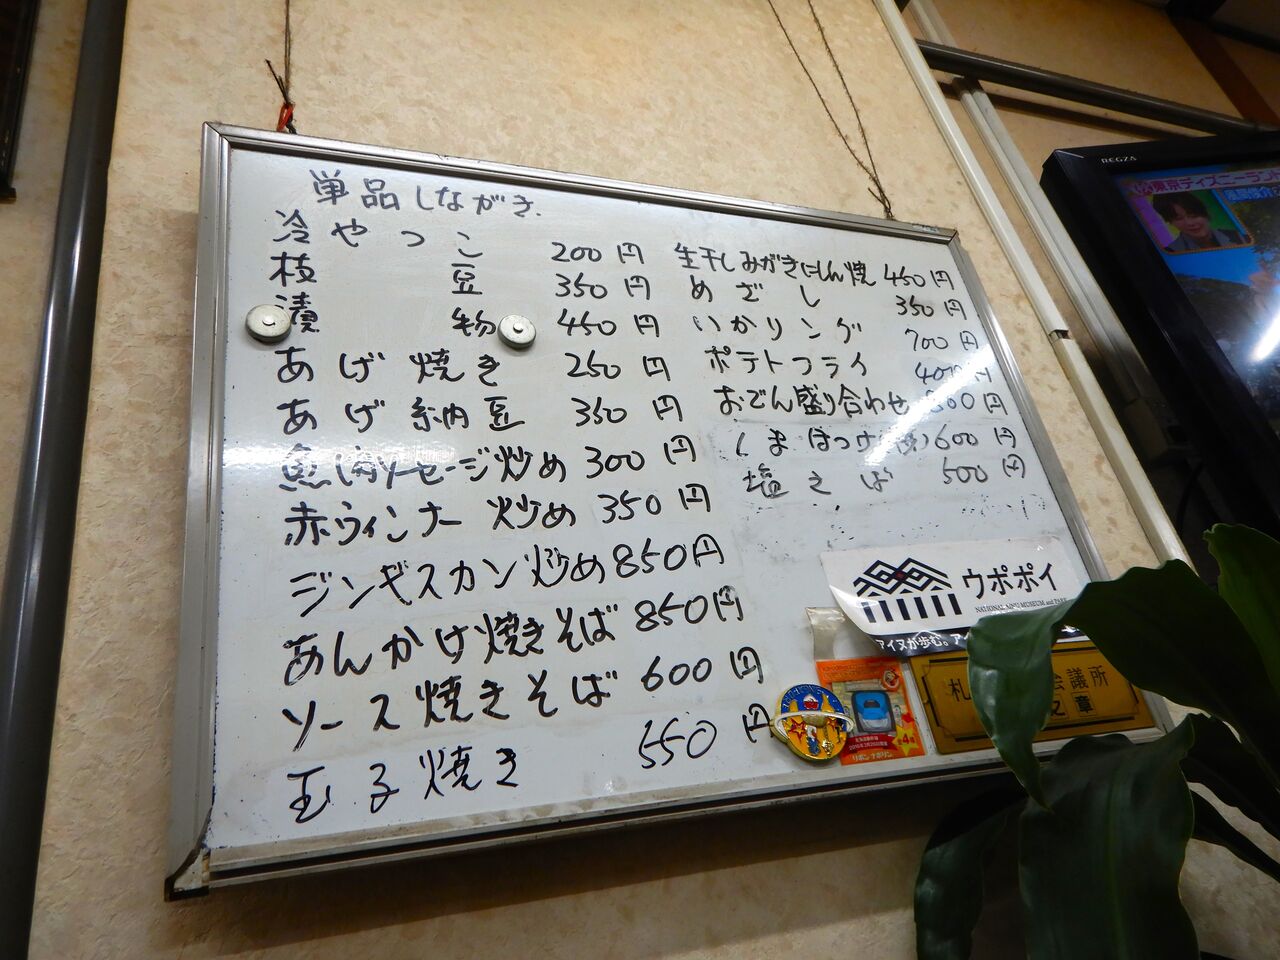 単品しながき.
冷やっこ 200円
枝豆 350円
漬物 450円
あげ焼き 250円
あげ納豆 350円
魚肉ソーセージ炒め 300円
赤ウィンナー炒め 350円
ジンギスカン炒め 850円
あんかけ焼きそば 850円
ソース焼きそば 600円
玉子焼き 550円
生干しみがきにしん焼 450円
めざし 350円
いかリング 700円
ポテトフライ 400円
おでん盛り合わせ 円
しまほっけ 600円
塩そば 500円
ウポポイ
NATIONAL AINU MUSEUM and PARK
アイヌが歩む。
札 会議所
之章
リボンナポリン
REGZA
東京ディズニーランド